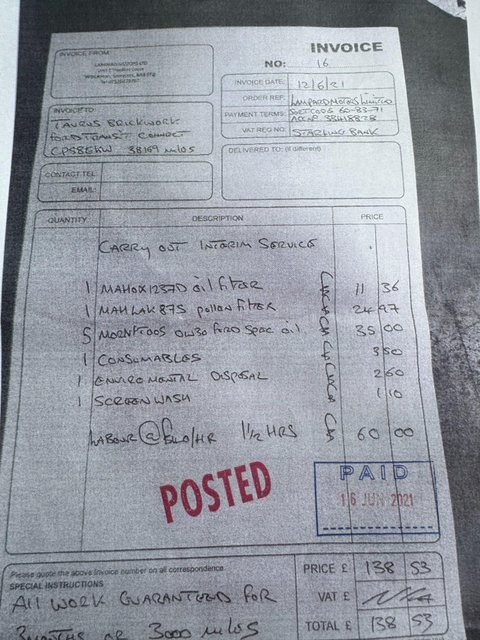 INVOICE
INVOICE FROM:
NO: 16
INVOICE DATE: 12/6/21
ORDER REF: LAMPARD MOTORS LIMITED
PAYMENT TERMS: SORTCODE 60-83-71
VAT REG NO: STARLING BANK
INVOICE TO:
TAURUS BRICKWORK
FORD TRANSIT CONNECT
38169 MILES
DELIVERED TO: (if different)
CONTACT TEL:
EMAIL:
QUANTITY DESCRIPTION PRICE
CARRY OUT INTERIM SERVICE
1 MAHOX1237D oil filter £ 11 36
1 MAHLAK875 pollen filter £ 24 97
5 0W30 FORD Spec oil £ 35 00
1 CONSUMABLES £ 3 50
1 ENVIROMENTAL DISPOSAL £ 2 60
1 SCREENWASH £ 1 10
LABOUR @ £40/HR 1 1/2 HRS £ 60 00
POSTED
PAID
16 JUN 2021
Please quote the above invoice number on all correspondence.
SPECIAL INSTRUCTIONS
PRICE £ 138 53
All WORK GUARANTEED FOR
VAT £ N/A
3 MONTHS OR 3000 MILES
TOTAL £ 138 53